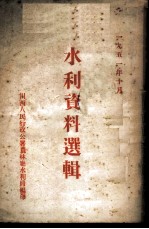 一九五一年十月
水利資料選輯
川西人民行政公署農林廳水利局編印